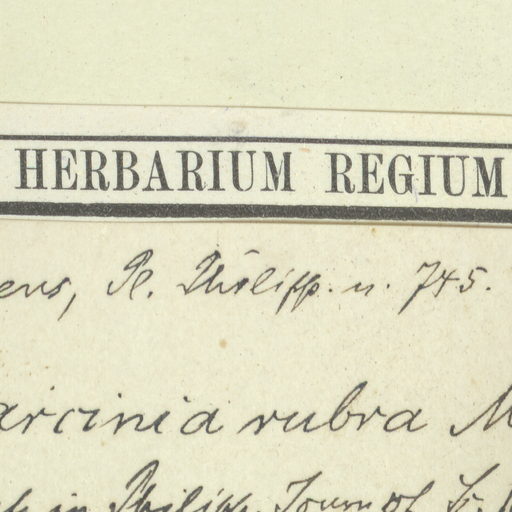 HERBARIUM REGIUM
ens, Pl. Philipp. n. 745.
arcinia rubra M
in Philipp. Journ. of